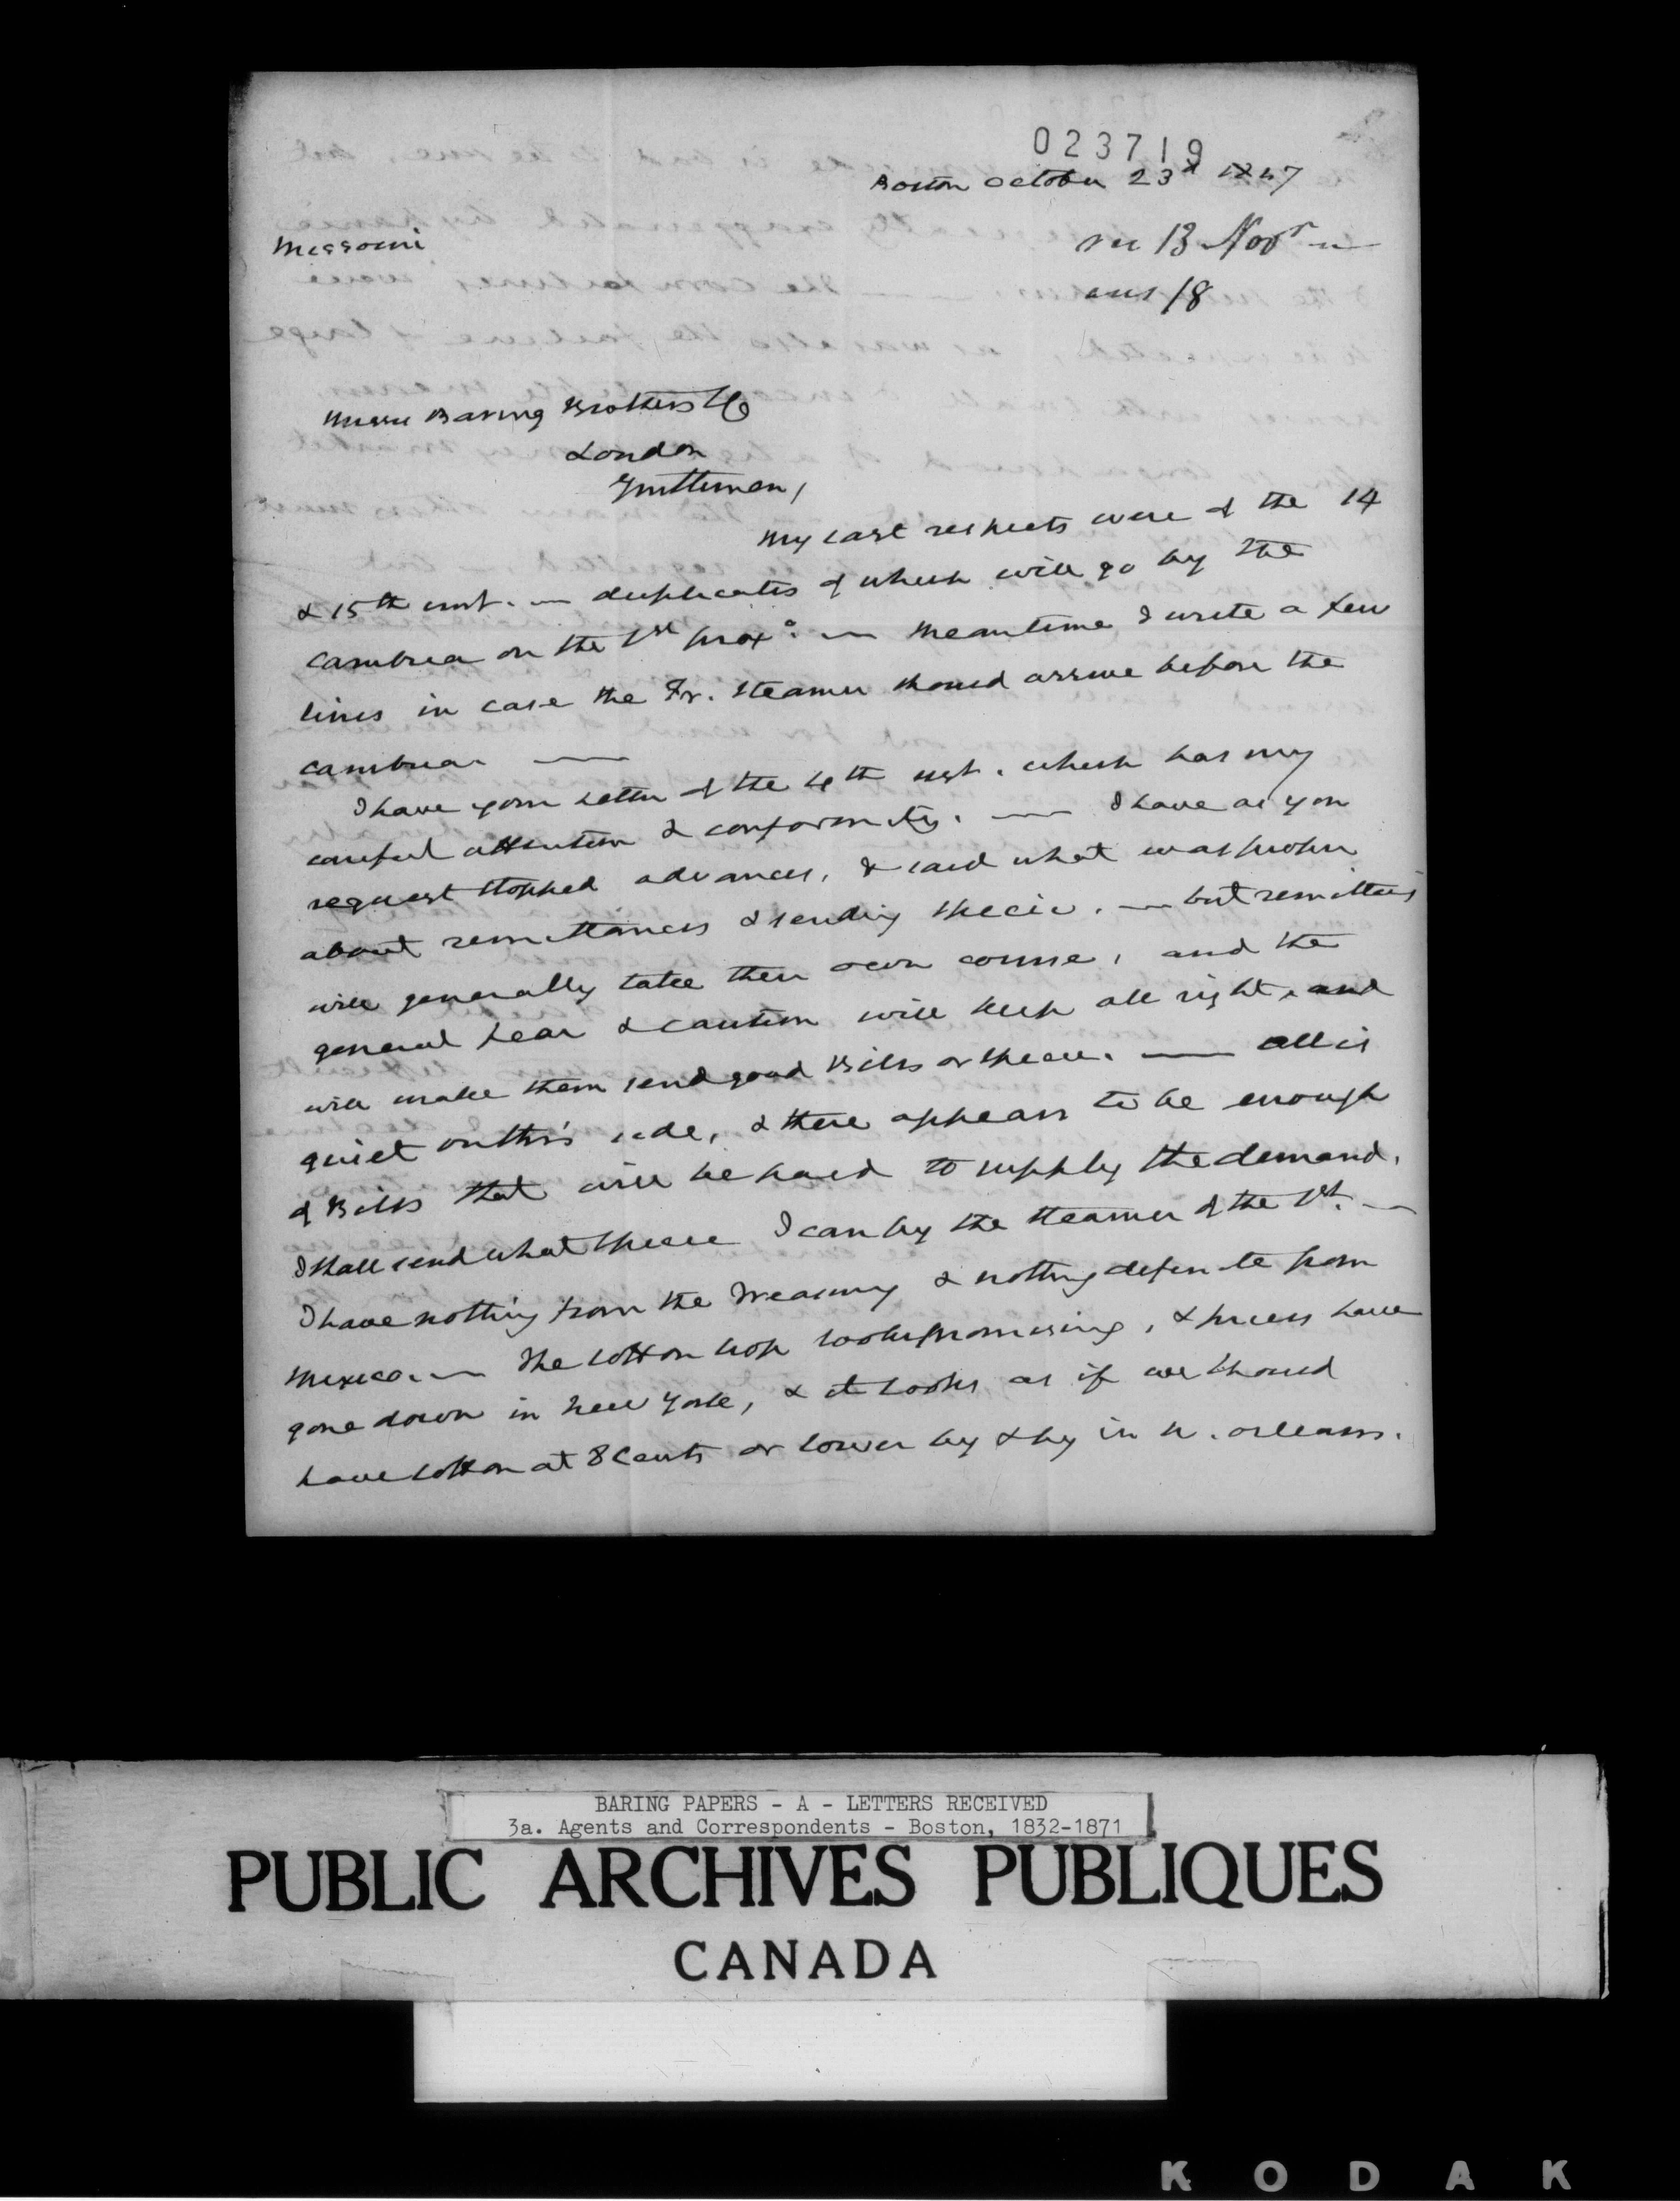 023719
Boston October 23d 1847
Missouri
rec 13 Novr
ans 18
Messrs Baring Brothers & Co
London
Gentlemen,
My last respects were of the 14
& 15th inst. — duplicates of which will go by the
Cambria on the 1st proxo. — Meantime I write a few
lines in case the Fr. Steamer should arrive before the
Cambria. —
I have your letter of the 4th inst. which has my
careful attention & conformity. — I have as you
request stopped advances, & said what was proper
about remittances & sending specie. — but remitters
will generally take their own course, and the
general fear & caution will keep all right, and
will make them send good Bills or specie. — all is
quiet on this side, & there appears to be enough
of Bills that will be paid to supply the demand.
I shall send what specie I can by the Steamer of the 1st. —
I have nothing from the Treasury & nothing definite from
Mexico. — The Cotton crop looks promising, & prices have
gone down in New York, & it looks as if we should
have Cotton at 8 cents or lower by & by in N. Orleans.
BARING PAPERS - A - LETTERS RECEIVED
3a. Agents and Correspondents - Boston, 1832-1871
PUBLIC ARCHIVES PUBLIQUES
CANADA
KODAK